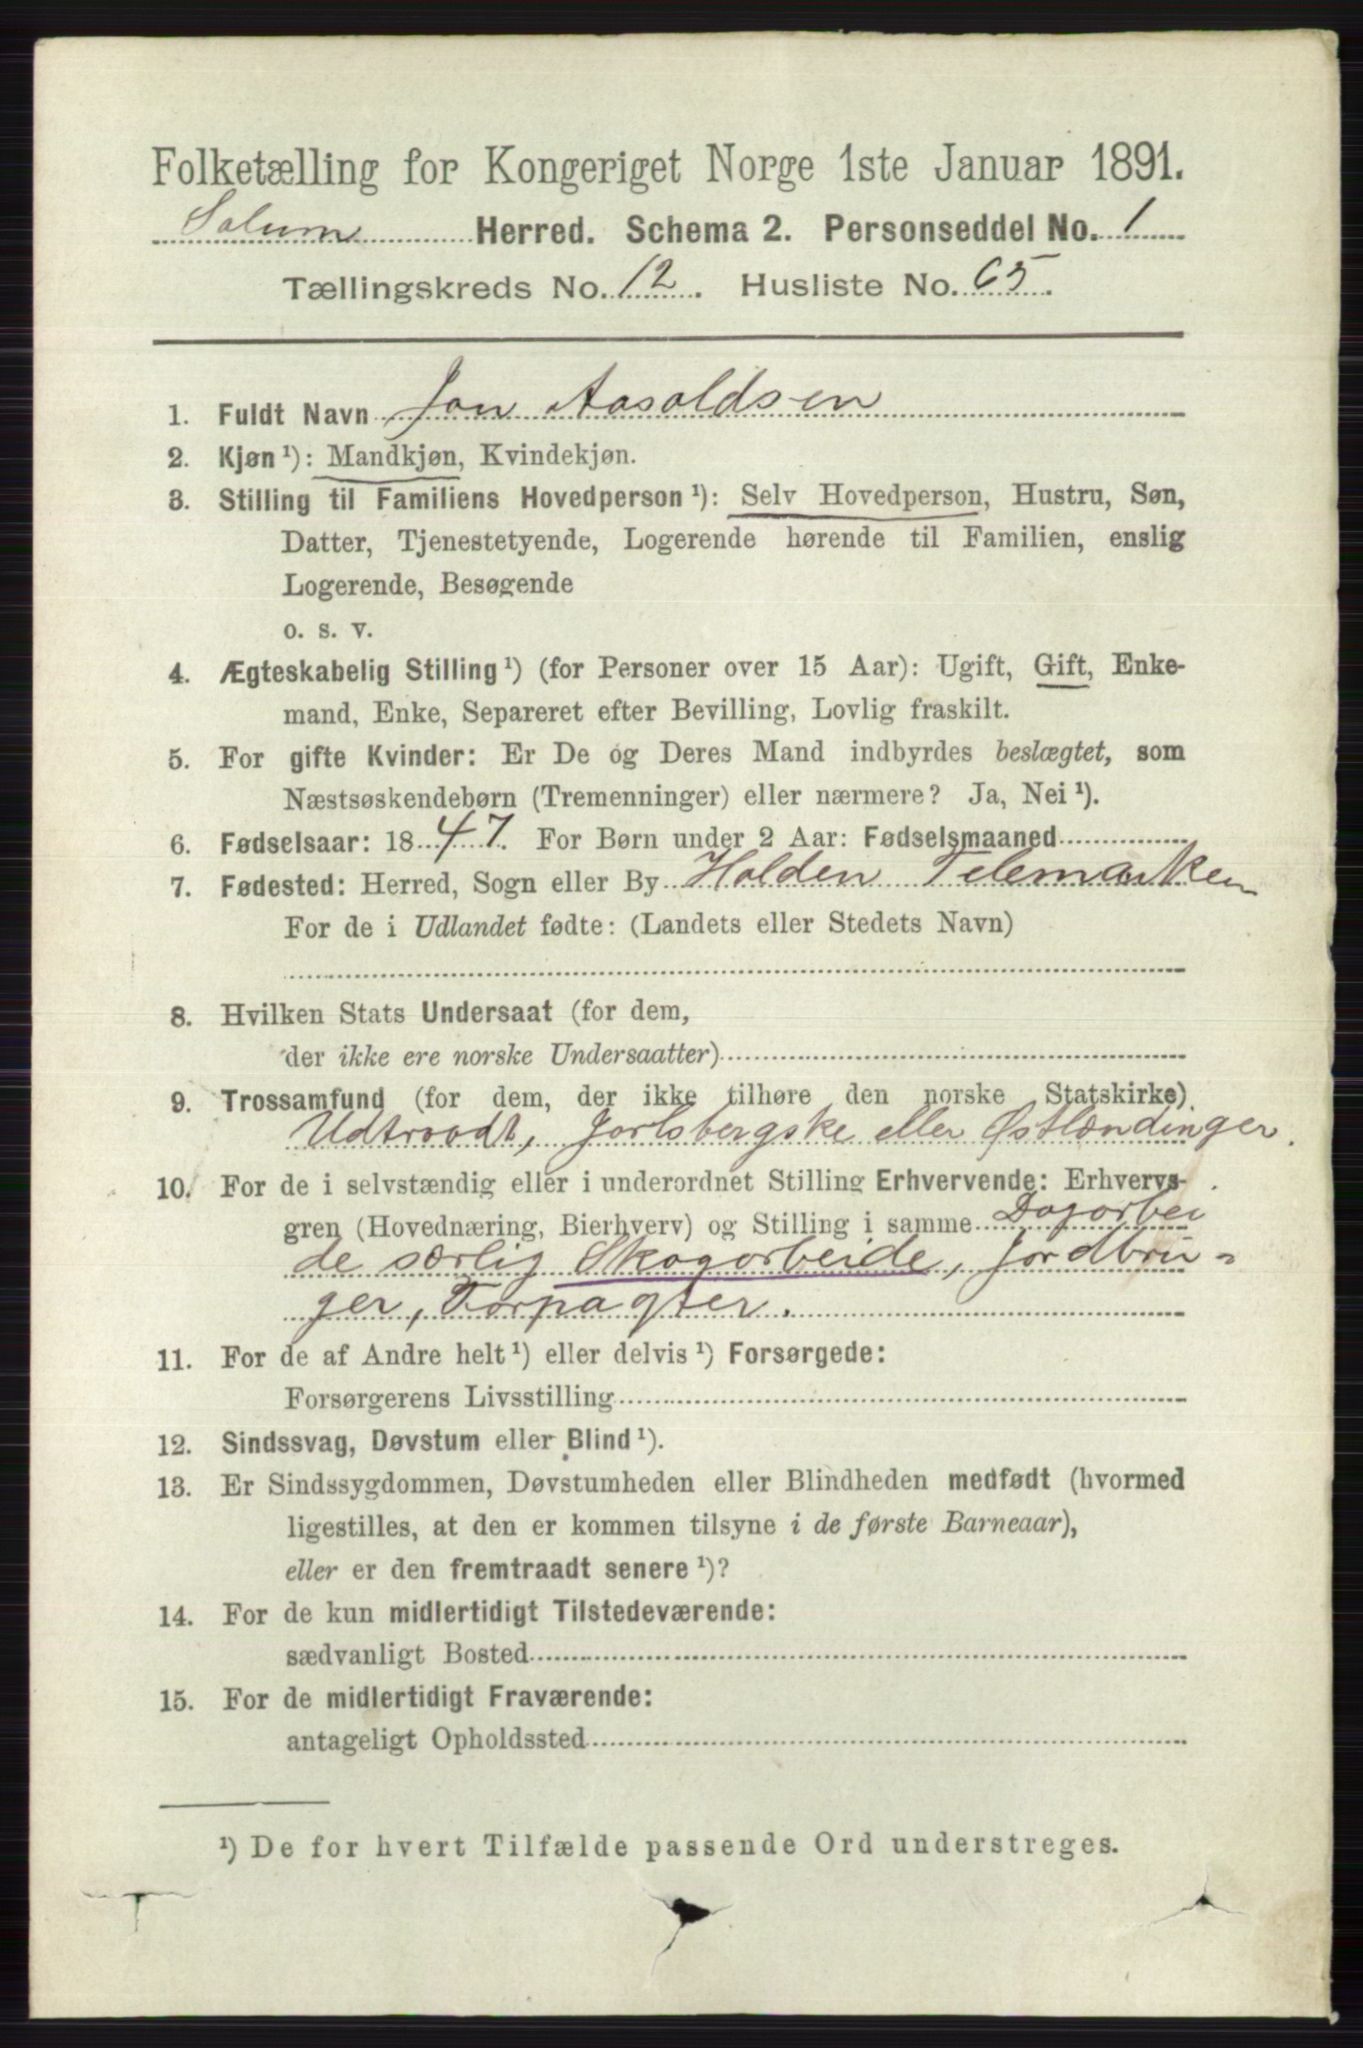 Folketælling for Kongeriget Norge 1ste Januar 1891.
Solum Herred. Schema 2. Personseddel No. 1
Tællingskreds No. 12. Husliste No. 65.
1. Fuldt Navn Jon Aasoldsen
2. Kjøn¹): Mandkjøn, Kvindekjøn.
3. Stilling til Familiens Hovedperson¹): Selv Hovedperson, Hustru, Søn,
Datter, Tjenestetyende, Logerende hørende til Familien, enslig
Logerende, Besøgende
o. s. v.
4. Ægteskabelig Stilling¹) (for Personer over 15 Aar): Ugift, Gift, Enke-
mand, Enke, Separeret efter Bevilling, Lovlig fraskilt.
5. For gifte Kvinder: Er De og Deres Mand indbyrdes beslægtet, som
Næstsøskendebørn (Tremenninger) eller nærmere? Ja, Nei¹).
6. Fødselsaar: 1847. For Børn under 2 Aar: Fødselsmaaned
7. Fødested: Herred, Sogn eller By Holden Telemarken
For de i Udlandet fødte: (Landets eller Stedets Navn)
8. Hvilken Stats Undersaat (for dem,
der ikke ere norske Undersaatter)
9. Trossamfund (for dem, der ikke tilhøre den norske Statskirke)
Udtraadt, Jarlsbergske eller Østlændinger.
10. For de i selvstændig eller i underordnet Stilling Erhvervende: Erhvervs-
gren (Hovednæring, Bierhverv) og Stilling i samme Dagarbei
de særlig Skogarbeide, jordbru-
ger, Forpagter.
11. For de af Andre helt¹) eller delvis¹) Forsørgede:
Forsørgerens Livsstilling
12. Sindssvag, Døvstum eller Blind¹).
13. Er Sindssygdommen, Døvstumheden eller Blindheden medfødt (hvormed
ligestilles, at den er kommen tilsyne i de første Barneaar),
eller er den fremtraadt senere¹)?
14. For de kun midlertidigt Tilstedeværende:
sædvanligt Bosted
15. For de midlertidigt Fraværende:
antageligt Opholdssted
¹) De for hvert Tilfælde passende Ord understreges.